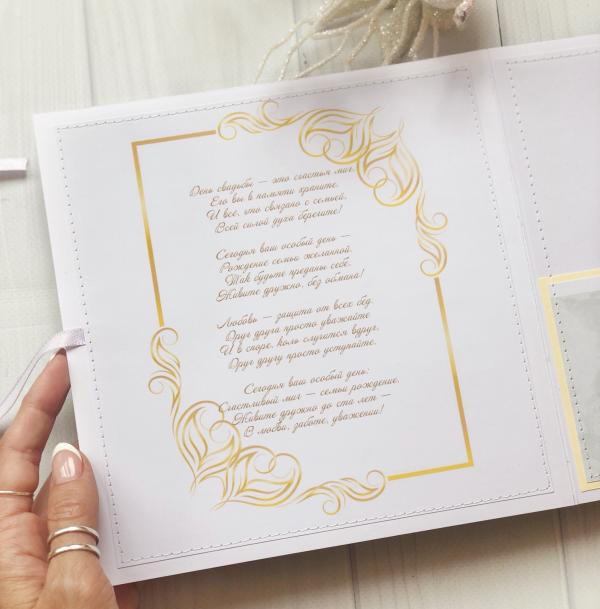 День свадьбы — это счастья миг.
Его вы в памяти храните.
И всё, что связано с семьёй,
Всей силой духа берегите!
Сегодня ваш особый день —
Рождение семьи желанной.
Так будьте преданы себе.
Живите дружно, без обмана!
Любовь — защита от всех бед.
Друг друга просто уважайте
И в споре, коль случится вдруг,
Друг другу просто уступайте.
Сегодня ваш особый день:
Счастливый миг — семьи рождение.
Живите дружно до ста лет —
В любви, заботе, уважении!